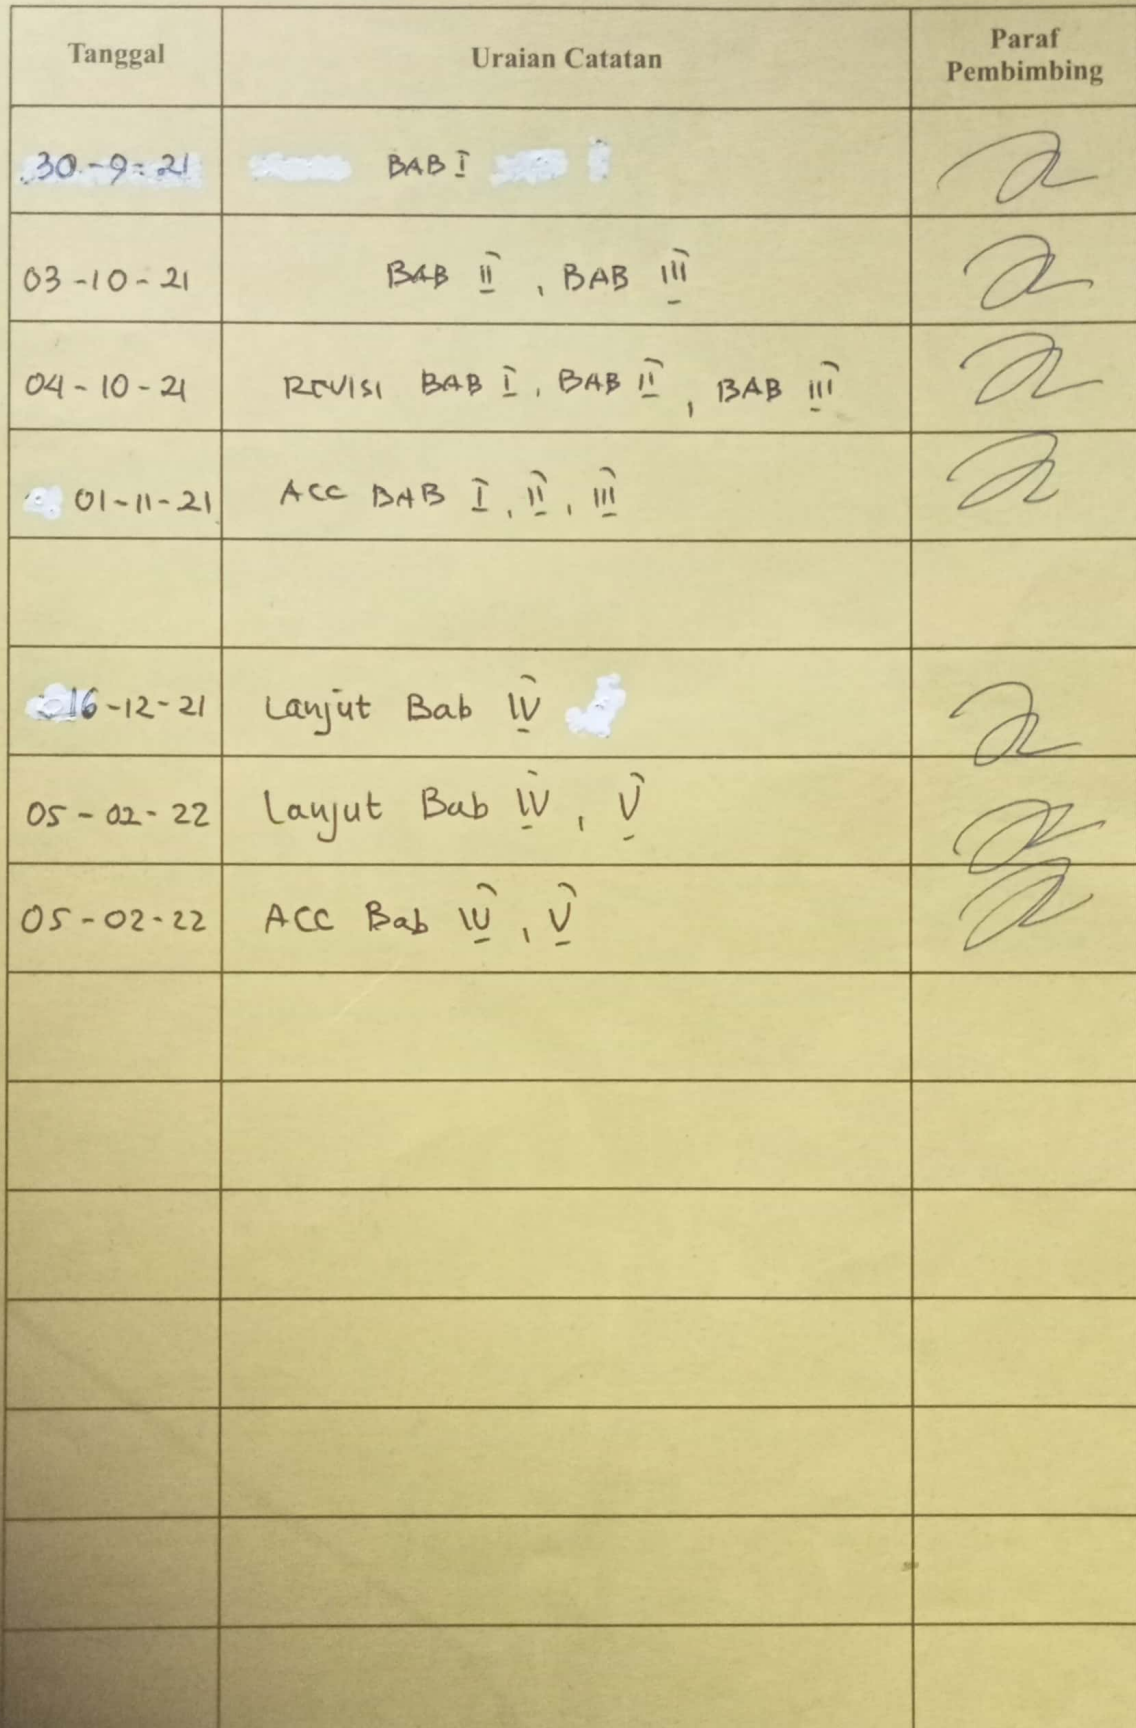 Tanggal Uraian Catatan Paraf Pembimbing
30-9-21 BAB I
03-10-21 BAB II, BAB III
04-10-21 REVISI BAB I, BAB II, BAB III
01-11-21 ACC BAB I, II, III
16-12-21 Lanjut Bab IV
05-02-22 Lanjut Bab IV, V
05-02-22 ACC Bab IV, V